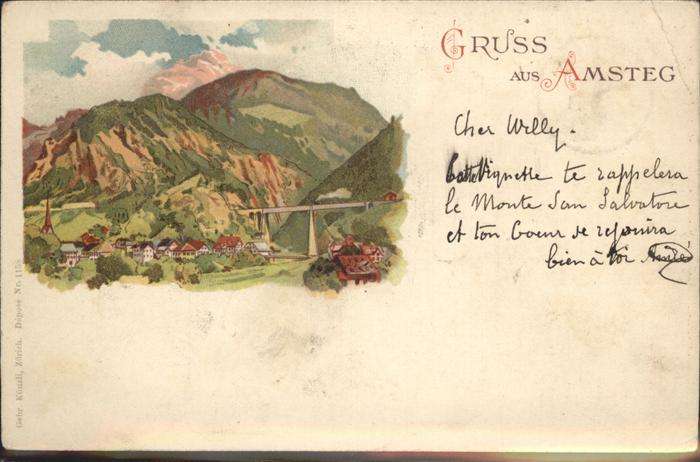 GRUSS
AUS AMSTEG
Cher Willy.
Cette Vignette te rappelera
le Monte San Salvatore
et ton Coeur se rejouira
bien à toi
Gebr. Künzli, Zürich. Dépose No. 115